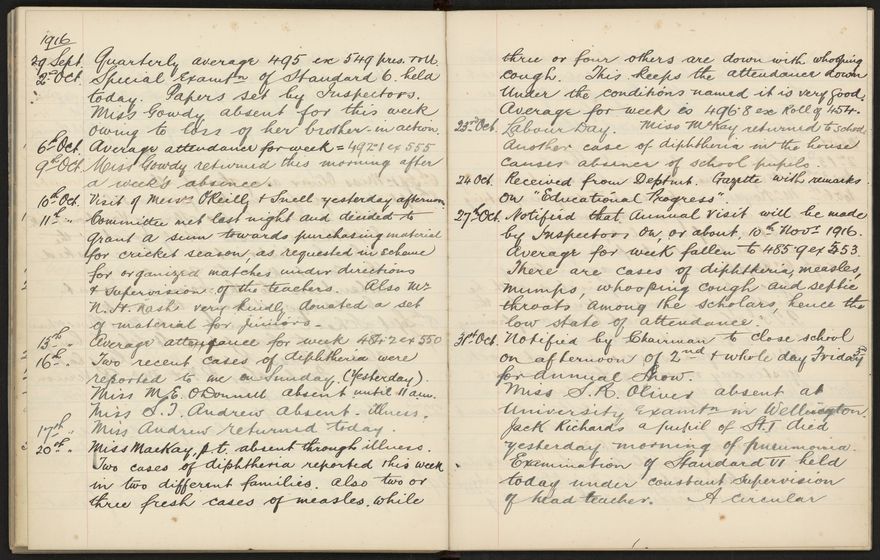 1916
29 Sept. Quarterly average 495 ex 549 pres. roll.
2nd Oct. Special Examtn of Standard 6 held
today. Papers set by Inspectors.
Miss Gowdy absent for this week
owing to loss of her brother in action.
6th Oct. Average attendance for week = 492·1 ex 555
9th Oct. Miss Gowdy returned this morning after
a week's absence.
10th Oct. Visit of Messrs O'Reilly & Snell yesterday afternoon
11th " Committee met last night and decided to
grant a sum towards purchasing material
for cricket season, as requested in scheme
for organized matches under directions
& supervision of the teachers. Also Mr
N. H. Nash very kindly donated a set
of material for juniors.
13th " Average attendance for week 484·2 ex 550
16th " Two recent cases of diphtheria were
reported to me on Sunday. (Yesterday).
Miss M. E. O'Donnell absent until 11 a.m.
Miss S. I. Andrew absent. illness.
17th " Miss Andrew returned today.
20th " Miss MacKay, p.t. absent through illness.
Two cases of diphtheria reported this week
in two different families. Also two or
three fresh cases of measles, while
three or four others are down with whooping
cough. This keeps the attendance down
Under the conditions named it is very good.
Average for week is 496·8 ex Roll of 454.
23rd Oct. Labour Day. Miss McKay returned to School
Another case of diphtheria in the house
causes absence of school pupils.
24 Oct. Received from Deptmt. Gazette with remarks
on "Educational Progress"
27th Oct. Notified that Annual Visit will be made
by Inspectors on, or about, 10th Novr 1916.
Average for week fallen to 485·9 ex 553.
There are cases of diphtheria, measles,
mumps, whooping cough and septic
throats among the scholars, hence the
low state of attendance.
31st Oct. Notified by Chairman to close school
on afternoon of 2nd & whole day Friday 3rd
for Annual Show.
Miss S. R. Oliver absent at
University Examtn in Wellington.
Jack Richards a pupil of St. I died
yesterday morning of pneumonia.
Examination of Standard VI held
today under constant supervision
of head teacher. A circular